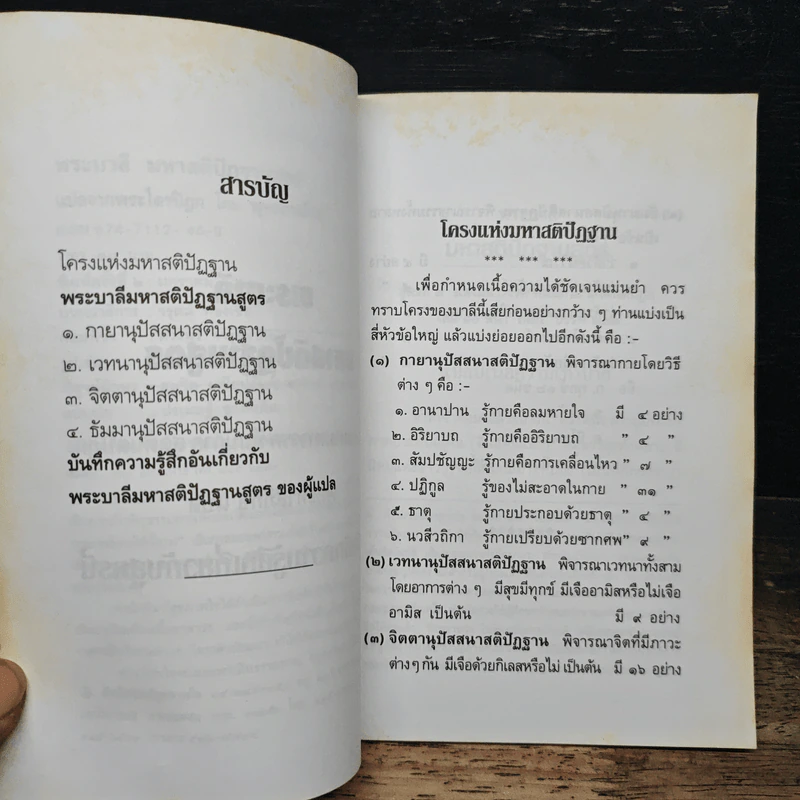 สารบัญ
โครงแห่งมหาสติปัฏฐาน
พระบาลีมหาสติปัฏฐานสูตร
๑. กายานุปัสสนาสติปัฏฐาน
๒. เวทนานุปัสสนาสติปัฏฐาน
๓. จิตตานุปัสสนาสติปัฏฐาน
๔. ธัมมานุปัสสนาสติปัฏฐาน
บันทึกความรู้สึกอันเกี่ยวกับ
พระบาลีมหาสติปัฏฐานสูตร ของผู้แปล
โครงแห่งมหาสติปัฏฐาน
*** *** ***
เพื่อกำหนดเนื้อความได้ชัดเจนแม่นยำ ควร
ทราบโครงของบาลีนี้เสียก่อนอย่างกว้าง ๆ ท่านแบ่งเป็น
สี่หัวข้อใหญ่ แล้วแบ่งย่อยออกไปอีกดังนี้ คือ :-
(๑) กายานุปัสสนาสติปัฏฐาน พิจารณากายโดยวิธี
ต่าง ๆ คือ :-
๑. อานาปาน รู้กายคือลมหายใจ มี ๔ อย่าง
๒. อิริยาบถ รู้กายคืออิริยาบถ " ๔ "
๓. สัมปชัญญะ รู้กายคือการเคลื่อนไหว " ๗ "
๔. ปฏิกูล รู้ของไม่สะอาดในกาย " ๓๑ "
๕. ธาตุ รู้กายประกอบด้วยธาตุ " ๔ "
๖. นวสีวถิกา รู้กายเปรียบด้วยซากศพ " ๙ "
(๒) เวทนานุปัสสนาสติปัฏฐาน พิจารณาเวทนาทั้งสาม
โดยอาการต่าง ๆ มีสุขมีทุกข์ มีเจืออามิสหรือไม่เจือ
อามิส เป็นต้น มี ๙ อย่าง
(๓) จิตตานุปัสสนาสติปัฏฐาน พิจารณาจิตที่มีภาวะ
ต่างๆ กัน มีเจือด้วยกิเลสหรือไม่ เป็นต้น มี ๑๖ อย่าง